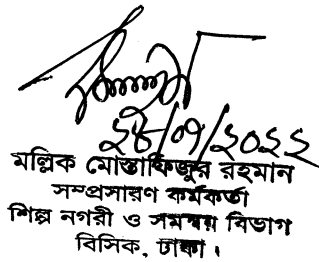 ২৪/০৭/২০২২
মল্লিক মোস্তাফিজুর রহমান
সম্প্রসারণ কর্মকর্তা
শিল্প নগরী ও সমন্বয় বিভাগ
বিসিক, ঢাকা।